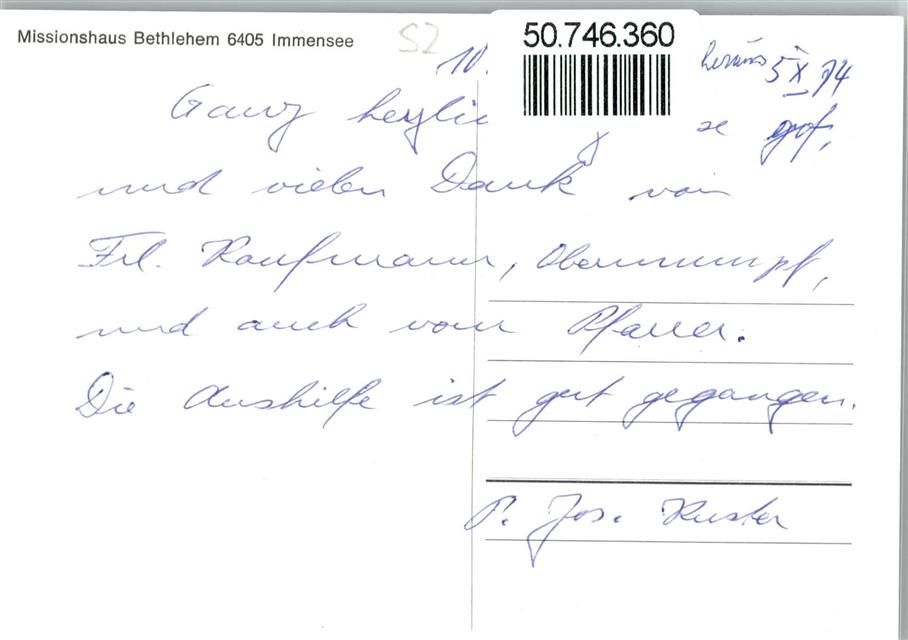 Missionshaus Bethlehem 6405 Immensee
SZ
50.746.360
10. 5 X 74
Ganz herzli
und vielen Dank von
Frl. Kaufmann, Obermumpf,
und auch vom Pfarrer.
Die Aushilfe ist gut gegangen.
P. Jos. Kuster